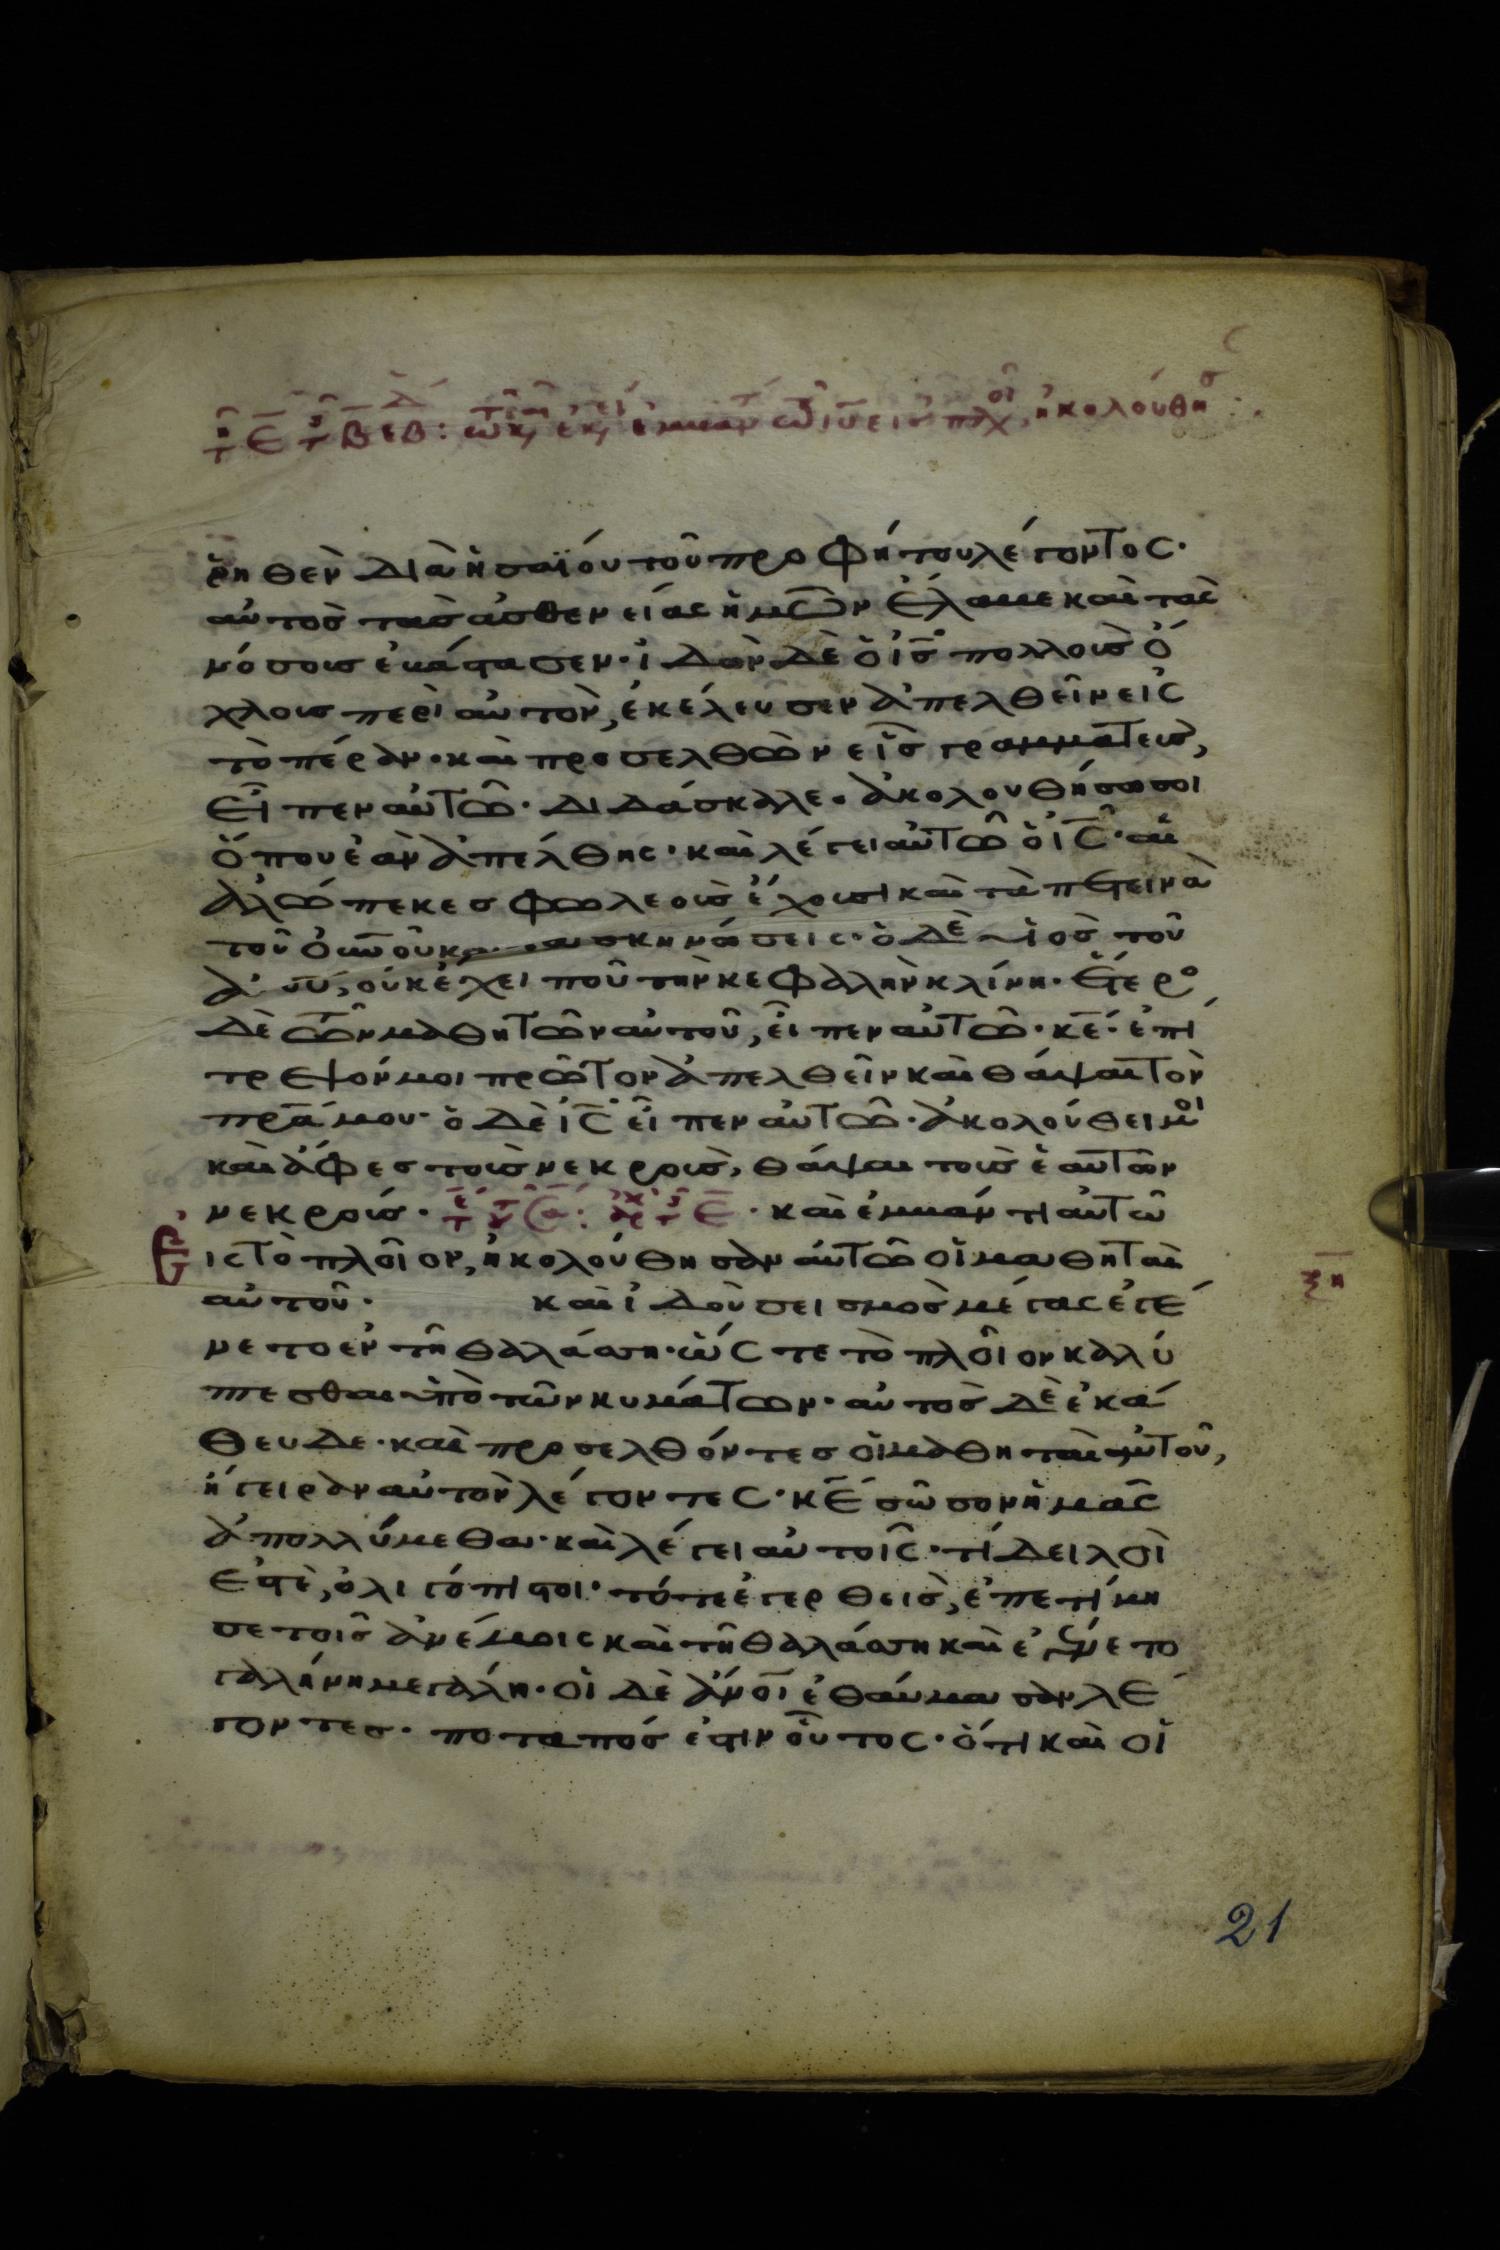 ῥηθὲν διὰ ἡσαΐου τοῦ προφήτου λέγοντος·
αὐτὸς τὰς ἀσθενείας ἡμῶν ἔλαβε καὶ τὰς
νόσους ἐβάστασεν· ἰδὼν δὲ ὁ ις πολλοὺς ὄ
χλους περὶ αὐτὸν, ἐκέλευσεν ἀπελθεῖν εἰς
τὸ πέραν· καὶ προσελθὼν εἷς γραμματεὺς,
εἶπεν αὐτῶ· διδάσκαλε· ἀκολουθήσω σοι
ὅπου ἐὰν ἀπέλθης· καὶ λέγει αὐτῶ ὁ ις· αἱ
ἀλώπεκες φωλεοὺς ἔχουσι καὶ τὰ πετεινὰ
τοῦ οὐνοῦ κατασκηνώσεις· ὁ δὲ υἱὸς τοῦ
ἀνου, οὐκ ἔχει ποῦ τὴν κεφαλὴν κλίνη· ἕτερο
δὲ τῶν μαθητῶν αὐτοῦ, εἶπεν αὐτῶ· κε· ἐπί
τρεψόν μοι πρῶτον ἀπελθεῖν καὶ θάψαι τὸν
πρα μου· ὁ δὲ ις εἶπεν αὐτῶ· ἀκολούθει μοι
καὶ ἄφες τοὺς νεκροὺς, θάψαι τοὺς ἑαυτῶν
νεκρούς· καὶ ἐμβάντι αὐτῶ
Εἰς τὸ πλοῖον, ἠκολούθησαν αὐτῶ οἱ μαθηταὶ
αὐτοῦ· καὶ ἰδοὺ σεισμὸς μέγας ἐγέ
νετο ἐν τῆ θαλάσση· ὥςτε τὸ πλοῖον καλύ
πτεσθαι ὑπὸ τῶν κυμάτων· αὐτὸς δὲ ἐκά
θευδε· καὶ προσελθόντες οἱ μαθηταὶ αὐτοῦ,
ἤγειραν αὐτὸν λέγοντες· κε σῶσον ἡμᾶς
ἀπολλύμεθα· καὶ λέγει αὐτοῖς· τί δειλοὶ
ἐστὲ, ὀλιγόπιστοι· τότε ἐγερθεὶς, ἐπετίμη
σε τοῖς ἀνέμοις καὶ τῆ θαλάσση καὶ ἐγένετο
γαλήνη μεγάλη· οἱ δὲ ἄνοι ἐθαύμασαν λέ
γοντες· ποταπός ἐστιν οὗτος· ὅτι καὶ οἱ
ξη
21